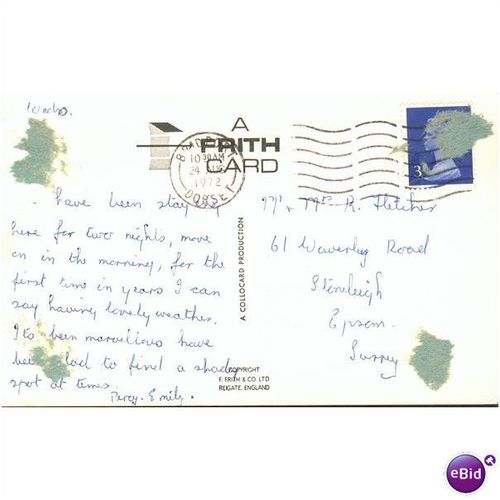 Weds.
A
FRITH
CARD
BRIDPORT
10 30 AM
24 AUG
1972
DORSET
3
have been staying
here for two nights, move
on in the morning, for the
first time in years I can
say having lovely weather.
Its been marvellous have
been glad to find a shady
spot at times.
Percy. Emily.
A COLLOCARD PRODUCTION
COPYRIGHT
F. FRITH & CO. LTD.
REIGATE, ENGLAND
Mr. Mrs R. Fletcher
61 Waverley Road
Stoneleigh
Epsom.
Surrey
eBid